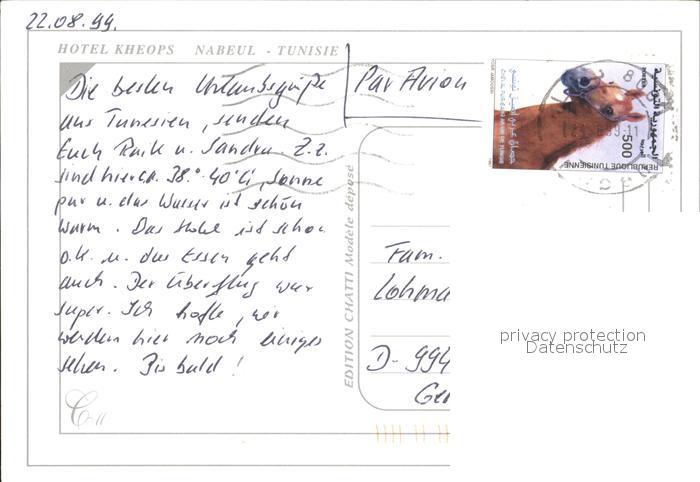 22.08.99.
HOTEL KHEOPS NABEUL - TUNISIE
Die besten Urlaubsgrüße
aus Tunesien, senden
Euch Raik u. Sandra. Z.Z.
sind hier ca. 38.° 40°C, Sonne
pur u. das Wasser ist schön
warm. Das Hotel ist schon
o.k. u. das Essen geht
auch. Der Überflug war
super. Ich hoffe, wir
werden hier noch einiges
sehen. Bis bald!
EDITION CHATTI Modèle déposé
Par Avion
500
REPUBLIQUE TUNISIENNE
الجمهورية التونسية
Fam.
Lohma
D-994
Ger
privacy protection
Datenschutz